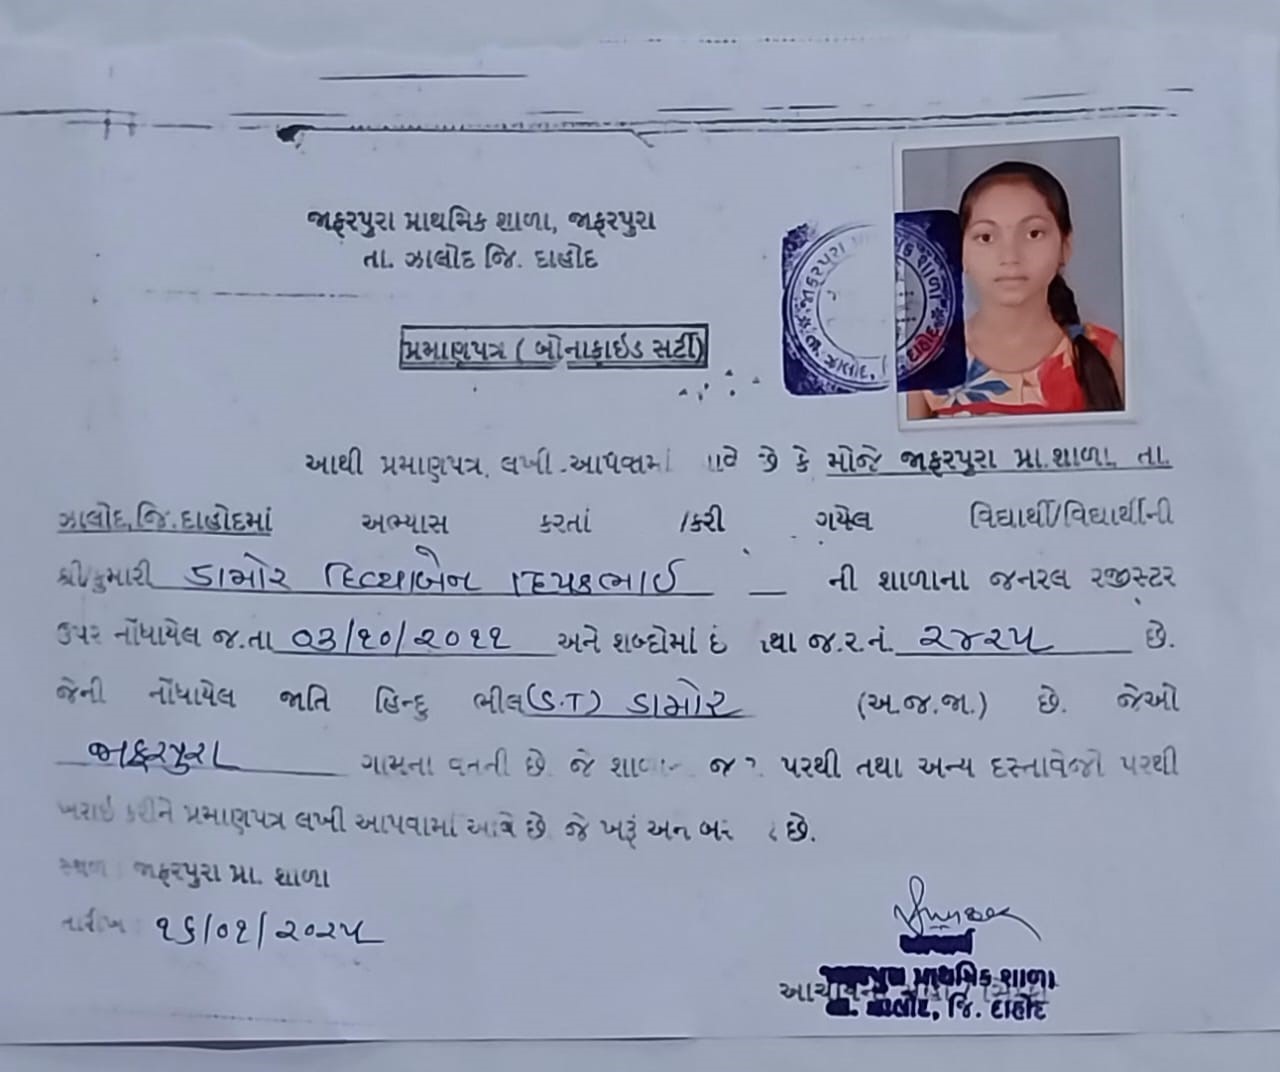 જાફરપુરા પ્રાથમિક શાળા, જાફરપુરા
તા. ઝાલોદ જિ. દાહોદ
પ્રમાણપત્ર ( બોનાફાઇડ સર્ટી)
આથી પ્રમાણપત્ર લખી આપવામાં છે કે મોજે જાફરપુરા પ્રા.શાળા તા.
ઝાલોદ,જિ.દાહોદમાં અભ્યાસ કરતાં /કરી ગયેલ વિદ્યાર્થી/વિદ્યાર્થીની
શ્રી/કુમારી ડામોર દિવ્યાબેન દિપકભાઈ ની શાળાના જનરલ રજીસ્ટર
ઉપર નોંધાયેલ જ.તા ૦૩/૧૦/૨૦૧૧ અને શબ્દોમાં જ.ર.નં. ૨૪૨૫ છે.
જેની નોંધાયેલ જાતિ હિન્દુ ભીલ(S.T) ડામોર (અ.જ.જા.) છે. જેઓ
જાફરપુરા ગામના વતની છે. જે પરથી તથા અન્ય દસ્તાવેજો પરથી
ખરાઇ કરીને પ્રમાણપત્ર લખી આપવામાં આવે છે. જે ખરૂં છે.
સ્થળ : જાફરપુરા પ્રા. શાળા
તારીખ : ૧૬/૦૧/૨૦૨૫
પ્રાથમિક શાળા
જિ. દાહોદ